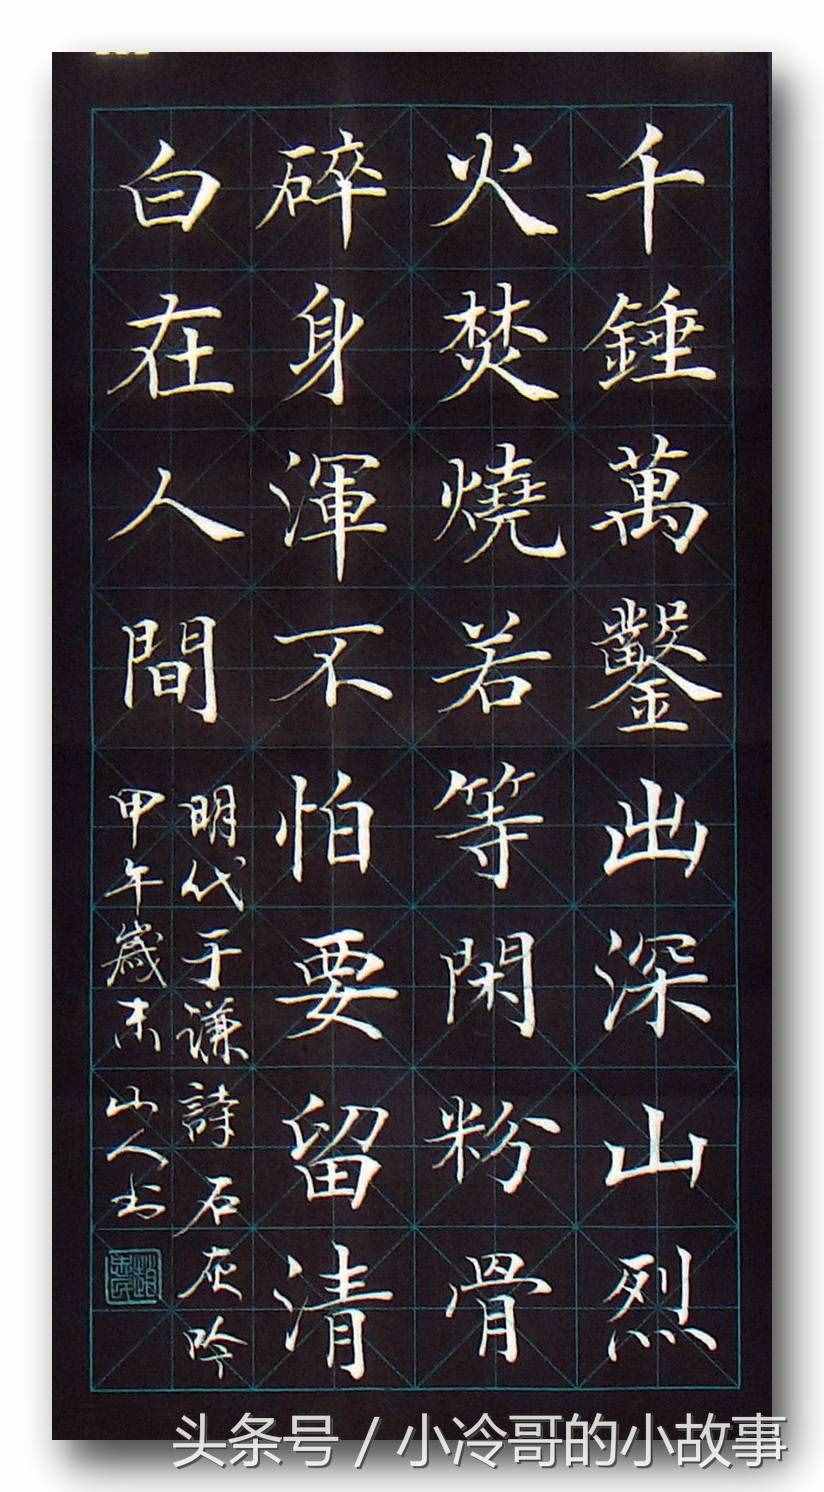 千錘萬鑿出深山烈
火焚燒若等閑粉骨
碎身渾不怕要留清
白在人間
明代于谦詩石灰吟
甲午歲山人书
头条号 / 小冷哥的小故事